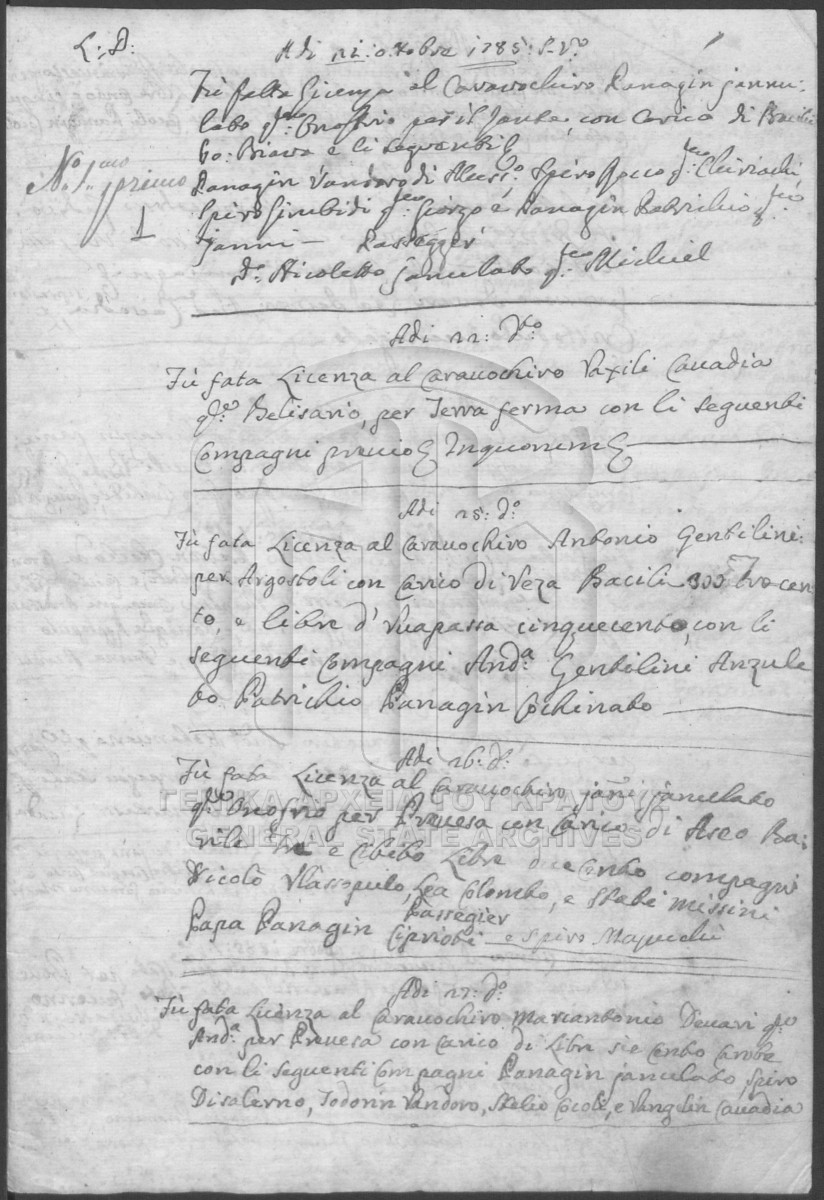 L: D:
Adi 21: ottobre 1785: S.V.
Fù fatta licenza al Caravochiro Panagin Jannu:
lato qm: Onofrio per il Zante, con Carico di Bacili
60: Biava e li seguenti
No: 1mo primo
1
Panagin Vandoro di Aless:o Spiro Rocco qm: Chiriachi,
Spiro Simbidi qm: Giorgo e Panagin Patrichio qm:
Janni — Passeggier
Do. Nicoletto Janulato qm: Michiel
Adi 22: do:
Fù fata Licenza al Caravochiro Vassili Cavadia
qm: Belisario, per Terra ferma con li seguenti
Compagni
Adi 25: do:
Fù fata Licenza al Caravochiro Antonio Gentilini:
per Argostoli con Carico di Veza Bacili 300 trecen
to, e libre d' Vuapassa cinquecento, con li
seguenti Compagni And:a Gentilini Anzule
to Patrichio Panagin Cochinato
Adi 26: do:
Fù fata Licenza al Caravochiro Janni Janulato
qm: Onofrio per Prevesa con Carico di Aseo Ba:
rile tre e Cibibo Libre duecento compagni
Nicolò Vlassopulo, Lea Colombo, e Stati Missini
Passegier
Papa Panagin Ciprioti e Spiro Mazuchi
ΓΕΝΙΚΑ ΑΡΧΕΙΑ ΤΟΥ ΚΡΑΤΟΥΣ
GENERAL STATE ARCHIVES
Adi 27: do:
Fù fata Licenza al Caravochiro Marcantonio Devari qm:
And:a per Prevesa con Carico di Libre sie cento Carobe
con li seguenti Compagni Panagin Janulato, Spiro
Disalerno, Todorin Vandoro, Stelio Cocoli, e Vangelin Cavadia